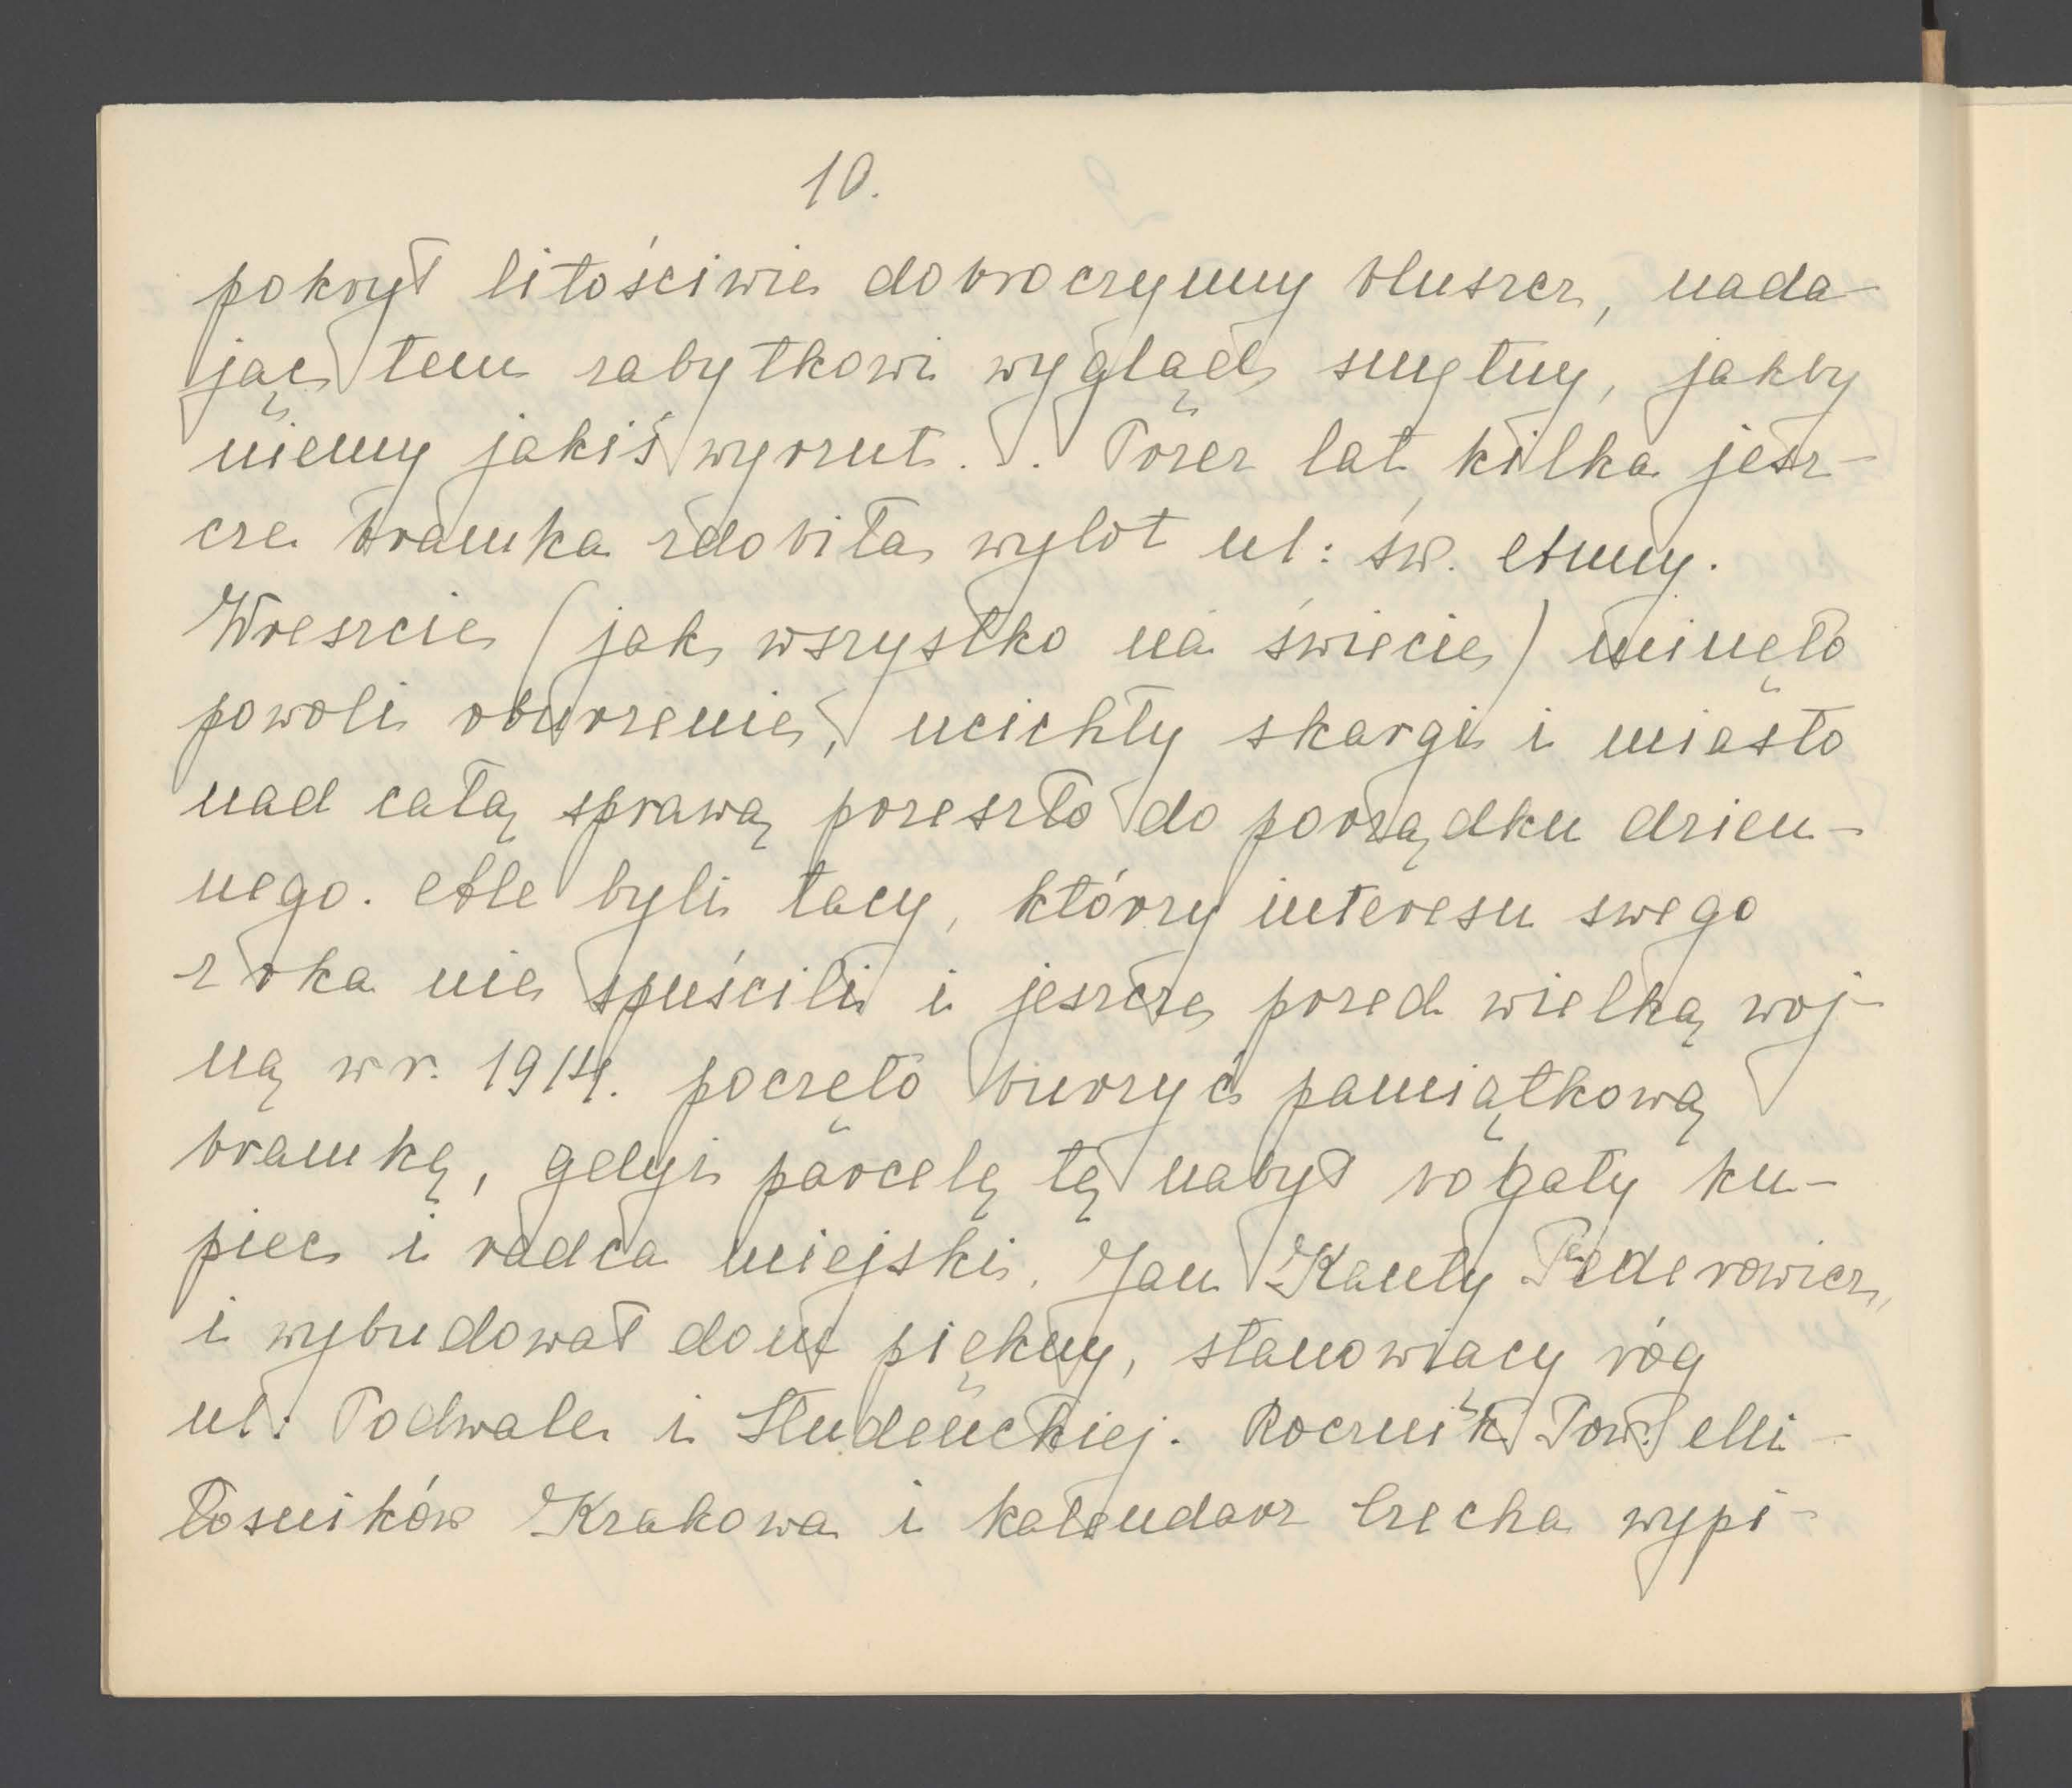 10.
pokrył litościwie dobroczynny bluszcz, nada-
jąc tem zabytkowi wygląd smętny, jakby
niemy jakiś wyrzut... Przez lat kilka jesz-
cze bramka zdobiła wylot ul: św. Anny.
Wreszcie (jak wszystko na świecie) minęło
powoli oburzenie, ucichły skargi i miasto
nad całą sprawą przeszło do porządku dzien-
nego. Ale byli tacy, którzy interesu swego
z oka nie spuścili i jeszcze przed wielką woj-
ną w r. 1914. poczęto burzyć pamiątkową
bramkę, gdyż parcelę tę nabył bogaty ku-
piec i radca miejski, Jan Kanty Federowicz,
i wybudował dom piękny, stanowiący róg
ul: Podwale i Studenckiej. Rocznik Tow. Mi-
łośników Krakowa i kalendarz Czecha wypi-